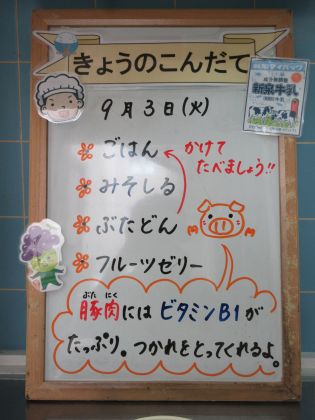 きょうのこんだて
9月3日(火)
ごはん
かけて
たべましょう!!
みそしる
ぶたどん
フルーツゼリー
ぶた にく
豚肉には ビタミンB1が
たっぷり。つかれをとってくれるよ。